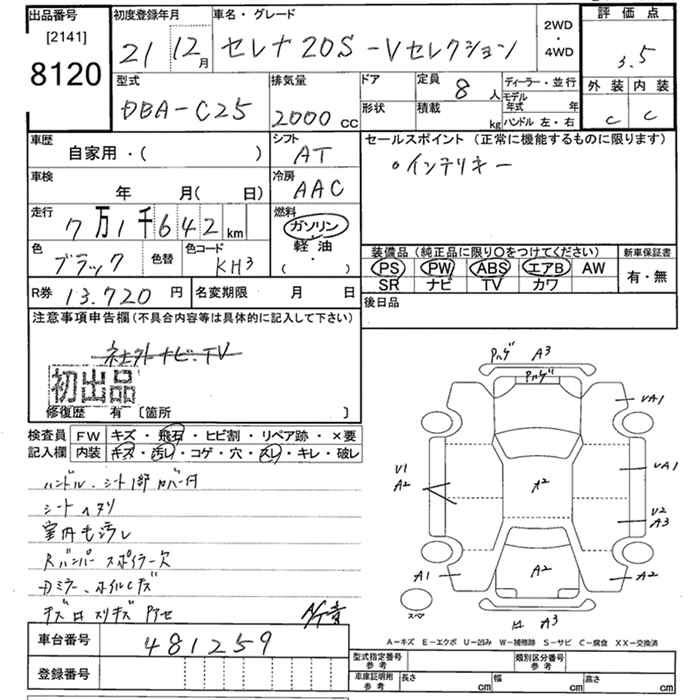 出品番号
[2141]
8120
初度登録年月
21 12月
車名・グレード
セレナ 20S -Vセレクション
2WD
・
4WD
評価点
3.5
外装 内装
C C
型式
DBA-C25
排気量
2000 CC
ドア
形状
定員
8人
積載
kg
ディーラー・並行
モデル
年式 年
ハンドル 左・右
車歴
自家用・( )
シフト
AT
セールスポイント (正常に機能するものに限ります)
・インテリキー
車検
年 月( 日)
冷房
AAC
走行
7万1千642km
燃料
ガソリン
軽油
( ・ )
色
ブラック
色替
色コード
KH3
装備品(純正品に限り〇をつけてください)
PS PW ABS エアB AW
SR ナビ TV カワ
新車保証書
有・無
R券 13.720 円
名変期限 月 日
後日品
注意事項申告欄(不具合内容等は具体的に記入して下さい)
社外ナビ・TV
初出品
修復歴 有 〔箇所 〕
検査員
記入欄
FW キズ・飛石・ヒビ割・リペア跡・×要
内装 キズ・汚レ・コゲ・穴・スレ・キレ・破レ
ハンドル、シート1部カバー付
シートヘタリ
室内も汚レ
Rバンパースポイラー欠
Dミラー、ホイルキズ
車台番号 481259
登録番号
ハゲ A3
ハゲ
UA1
UA1
U1
A2
A2
U2
A3
A1
A2
A2
スペア
A3
A-キズ E-エクボ U-凹み W-補修跡 S-サビ C-腐食 XX-交換済
型式指定番号
参考
類別区分番号
参考
車庫証明附
参考
長さ cm
幅 cm
高さ cm